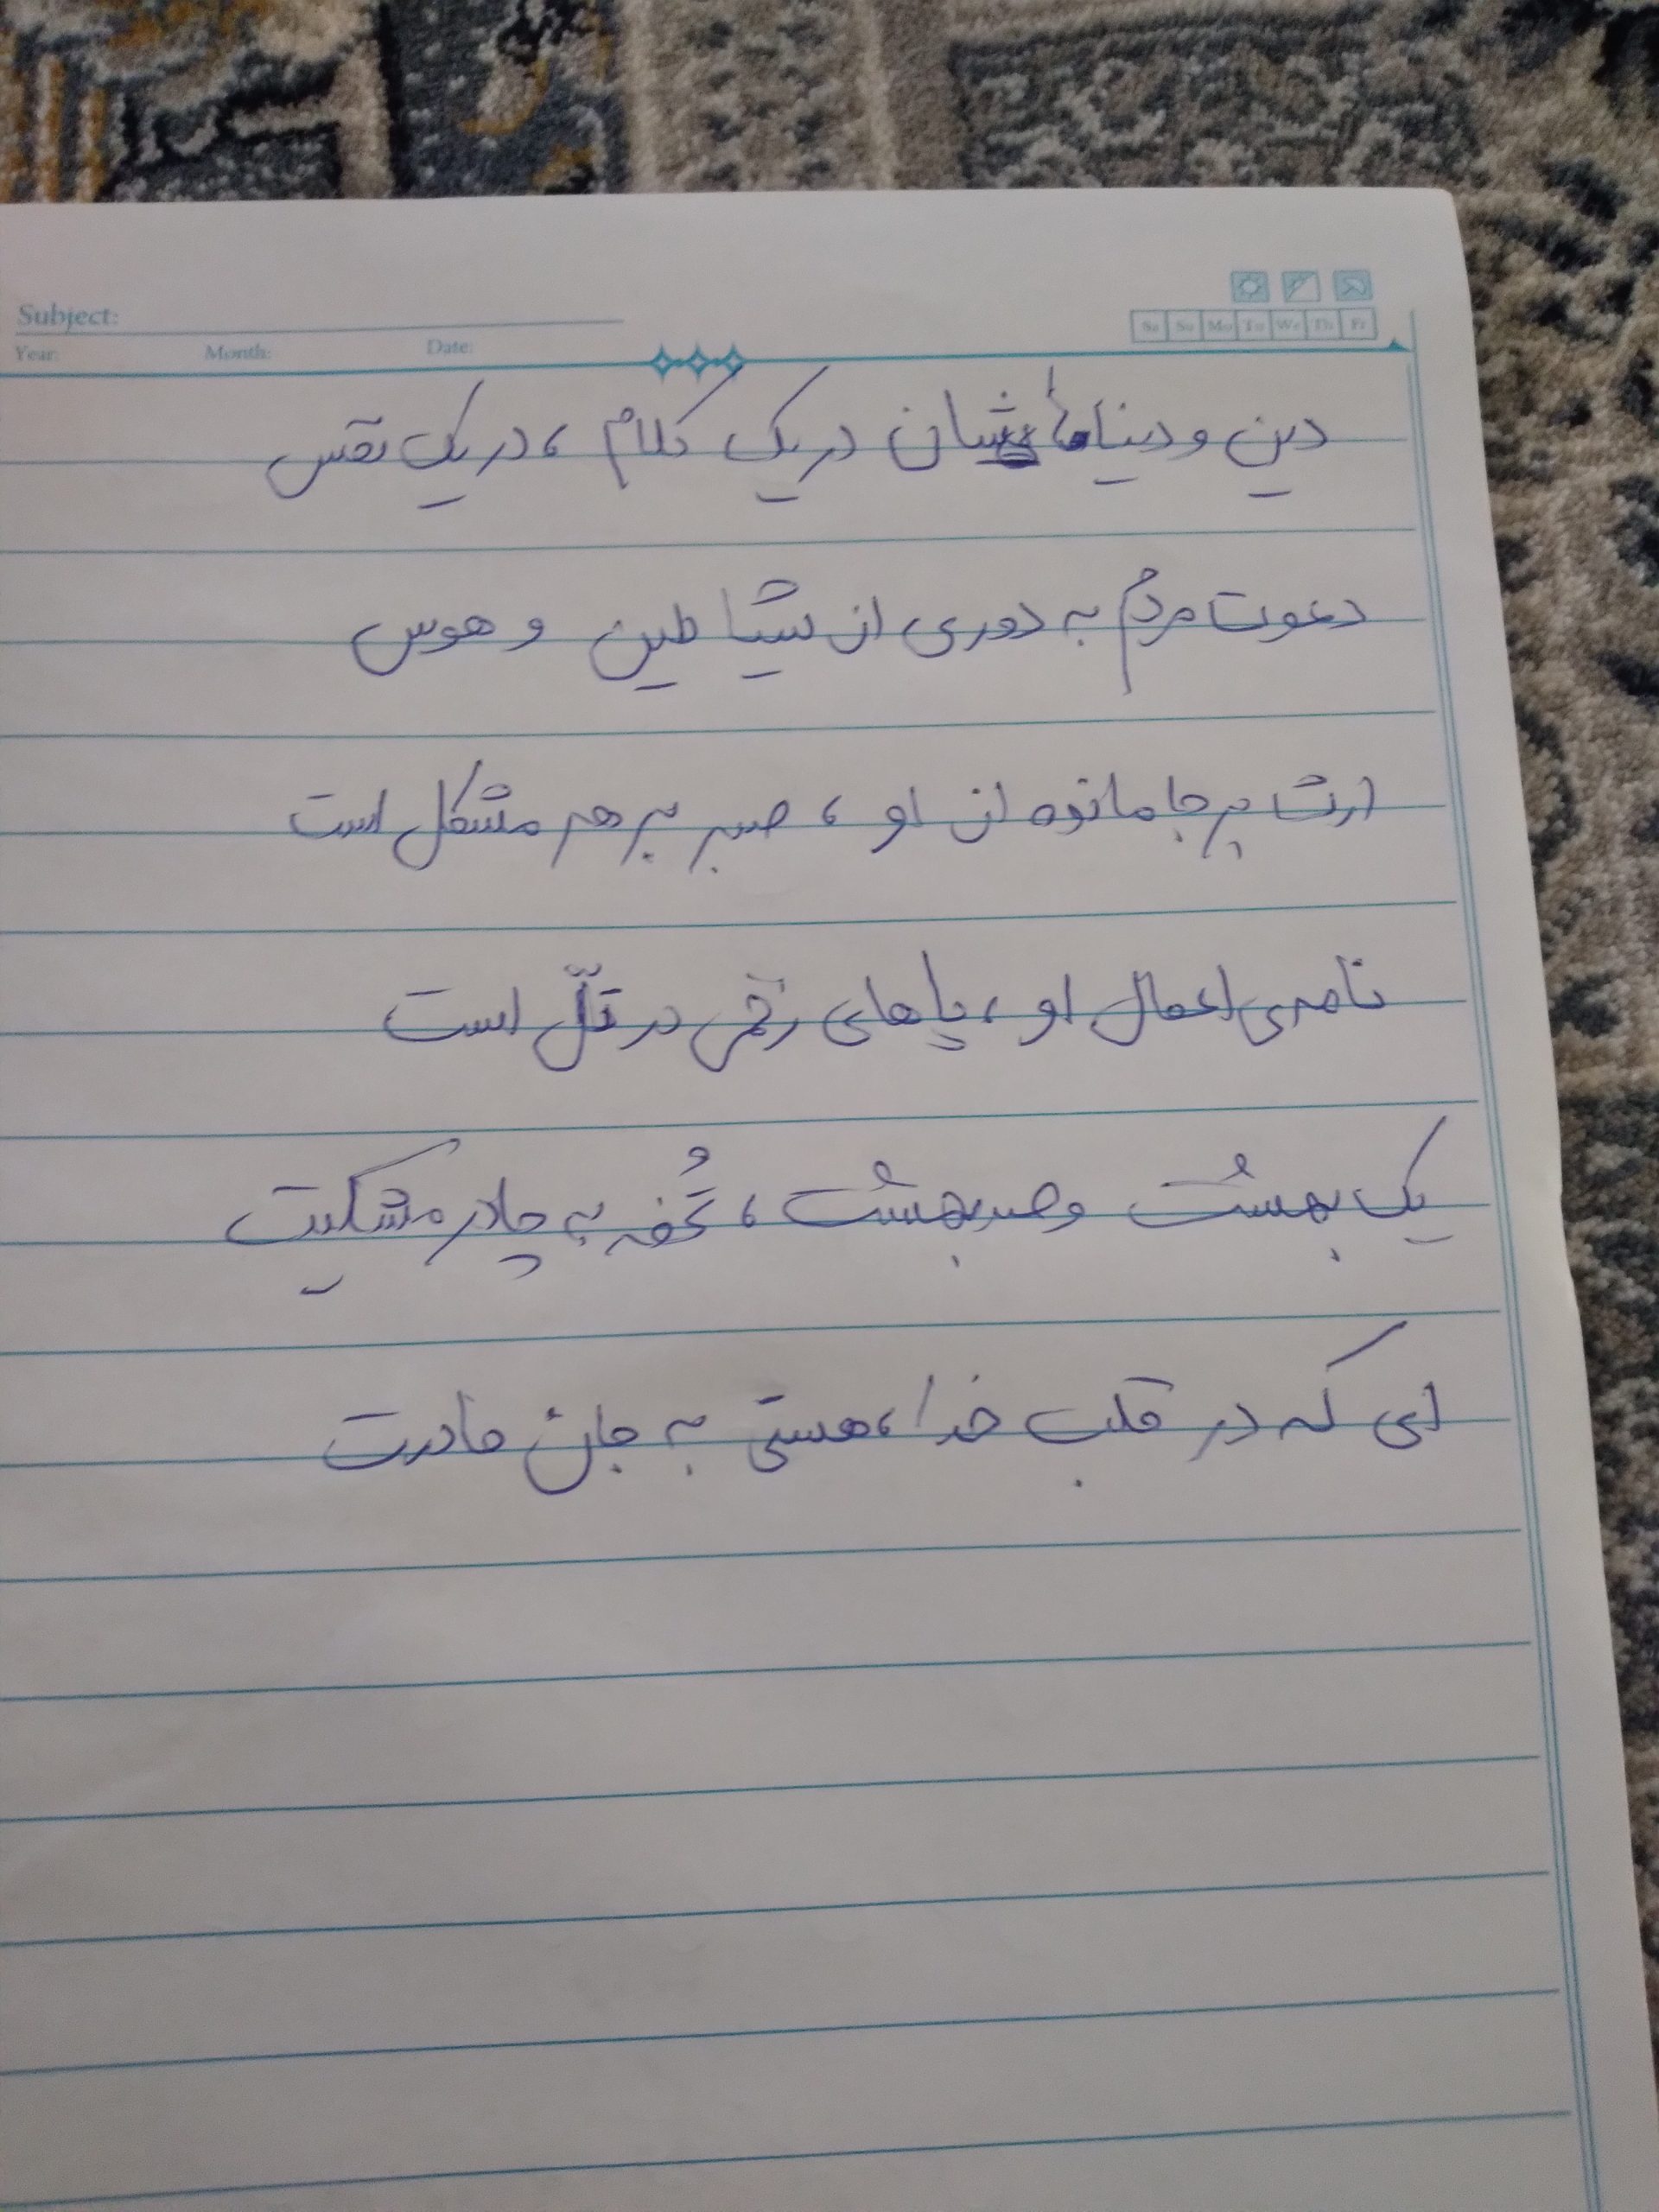 Subject:
Year: Month: Date:
Sa Su Mo Tu We Th Fr
دین و دنیاهایشان در یک کلام ، در یک نفس
دعوت مردم به دوری از شیاطین و هوس
ارث برجا مانده از او ، صبر بر هر مشکل است
نامه‌ی اعمال او ، پاهای زخمی در تلّ است
یک بهشت و صد بهشت ، تُحفه به چادر مشکیت
ای که در قلب خدا ، هستی به جان مادرت